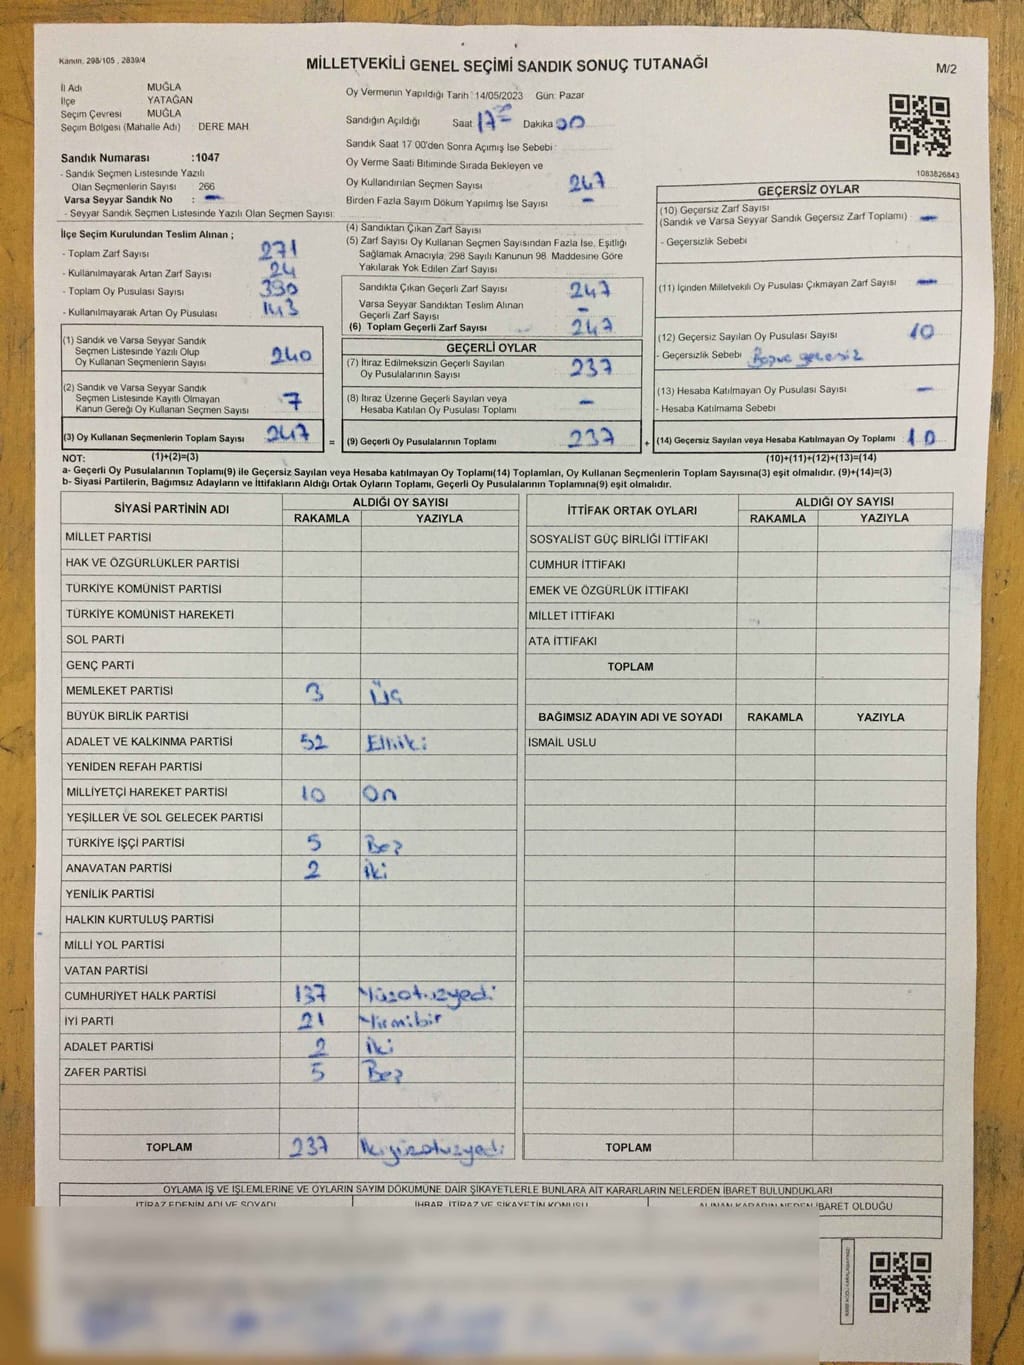 Kanun, 298/105 , 2839/4
MİLLETVEKİLİ GENEL SEÇİMİ SANDIK SONUÇ TUTANAĞI
M/2
İl Adı MUĞLA
İlçe YATAĞAN
Seçim Çevresi MUĞLA
Seçim Bölgesi (Mahalle Adı) DERE MAH
Sandık Numarası :1047
- Sandık Seçmen Listesinde Yazılı
Olan Seçmenlerin Sayısı 266
Varsa Seyyar Sandık No : -
- Seyyar Sandık Seçmen Listesinde Yazılı Olan Seçmen Sayısı:
Oy Vermenin Yapıldığı Tarih :14/05/2023 Gün: Pazar
Sandığın Açıldığı Saat 17 Dakika 00
Sandık Saat 17 00'den Sonra Açımış İse Sebebi :
Oy Verme Saati Bitiminde Sırada Bekleyen ve
Oy Kullandırılan Seçmen Sayısı 247
Birden Fazla Sayım Döküm Yapılmış İse Sayısı -
1083826843
İlçe Seçim Kurulundan Teslim Alınan ;
- Toplam Zarf Sayısı 271
- Kullanılmayarak Artan Zarf Sayısı 24
- Toplam Oy Pusulası Sayısı 390
- Kullanılmayarak Artan Oy Pusulası 143
(1) Sandık ve Varsa Seyyar Sandık
Seçmen Listesinde Yazılı Olup
Oy Kullanan Seçmenlerin Sayısı 240
(2) Sandık ve Varsa Seyyar Sandık
Seçmen Listesinde Kayıtlı Olmayan
Kanun Gereği Oy Kullanan Seçmen Sayısı 7
(3) Oy Kullanan Seçmenlerin Toplam Sayısı 247 =
(4) Sandıktan Çıkan Zarf Sayısı
(5) Zarf Sayısı Oy Kullanan Seçmen Sayısından Fazla İse, Eşitliği
Sağlamak Amacıyla, 298 Sayılı Kanunun 98. Maddesine Göre
Yakılarak Yok Edilen Zarf Sayısı
Sandıkta Çıkan Geçerli Zarf Sayısı 247
Varsa Seyyar Sandıktan Teslim Alınan
Geçerli Zarf Sayısı -
(6) Toplam Geçerli Zarf Sayısı 247
GEÇERLİ OYLAR
(7) İtiraz Edilmeksizin Geçerli Sayılan
Oy Pusulalarının Sayısı 237
(8) İtiraz Üzerine Geçerli Sayılan veya
Hesaba Katılan Oy Pusulası Toplamı -
(9) Geçerli Oy Pusulalarının Toplamı 237 +
GEÇERSİZ OYLAR
(10) Geçersiz Zarf Sayısı
(Sandık ve Varsa Seyyar Sandık Geçersiz Zarf Toplamı) : -
- Geçersizlik Sebebi
(11) İçinden Milletvekili Oy Pusulası Çıkmayan Zarf Sayısı -
(12) Geçersiz Sayılan Oy Pusulası Sayısı 10
- Geçersizlik Sebebi geçersiz
(13) Hesaba Katılmayan Oy Pusulası Sayısı -
- Hesaba Katılmama Sebebi
(14) Geçersiz Sayılan veya Hesaba Katılmayan Oy Toplamı 10
NOT: (1)+(2)=(3)
(10)+(11)+(12)+(13)=(14)
a- Geçerli Oy Pusulalarının Toplamı(9) ile Geçersiz Sayılan veya Hesaba katılmayan Oy Toplamı(14) Toplamları, Oy Kullanan Seçmenlerin Toplam Sayısına(3) eşit olmalıdır. (9)+(14)=(3)
b- Siyasi Partilerin, Bağımsız Adayların ve İttifakların Aldığı Ortak Oyların Toplamı, Geçerli Oy Pusulalarının Toplamına(9) eşit olmalıdır.
SİYASİ PARTİNİN ADI ALDIĞI OY SAYISI
RAKAMLA YAZIYLA
MİLLET PARTİSİ
HAK VE ÖZGÜRLÜKLER PARTİSİ
TÜRKİYE KOMÜNİST PARTİSİ
TÜRKİYE KOMÜNİST HAREKETİ
SOL PARTİ
GENÇ PARTİ
MEMLEKET PARTİSİ 3 Üç
BÜYÜK BİRLİK PARTİSİ
ADALET VE KALKINMA PARTİSİ 52 Elliiki
YENİDEN REFAH PARTİSİ
MİLLİYETÇİ HAREKET PARTİSİ 10 On
YEŞİLLER VE SOL GELECEK PARTİSİ
TÜRKİYE İŞÇİ PARTİSİ 5 Beş
ANAVATAN PARTİSİ 2 İki
YENİLİK PARTİSİ
HALKIN KURTULUŞ PARTİSİ
MİLLİ YOL PARTİSİ
VATAN PARTİSİ
CUMHURİYET HALK PARTİSİ 137 Yüzotuzyedi
İYİ PARTİ 21 Yirmibir
ADALET PARTİSİ 2 İki
ZAFER PARTİSİ 5 Beş
TOPLAM 237 İkiyüzotuzyedi
İTTİFAK ORTAK OYLARI ALDIĞI OY SAYISI
RAKAMLA YAZIYLA
SOSYALİST GÜÇ BİRLİĞİ İTTİFAKI
CUMHUR İTTİFAKI
EMEK VE ÖZGÜRLÜK İTTİFAKI
MİLLET İTTİFAKI
ATA İTTİFAKI
TOPLAM
BAĞIMSIZ ADAYIN ADI VE SOYADI RAKAMLA YAZIYLA
İSMAİL USLU
TOPLAM
OYLAMA İŞ VE İŞLEMLERİNE VE OYLARIN SAYIM DÖKÜMÜNE DAİR ŞİKAYETLERLE BUNLARA AİT KARARLARIN NELERDEN İBARET BULUNDUKLARI
İTİRAZ EDENİN ADI VE SOYADI İHBAR, İTİRAZ VE ŞİKAYETİN KONUSU ALINAN KARARIN NEDEN İBARET OLDUĞU